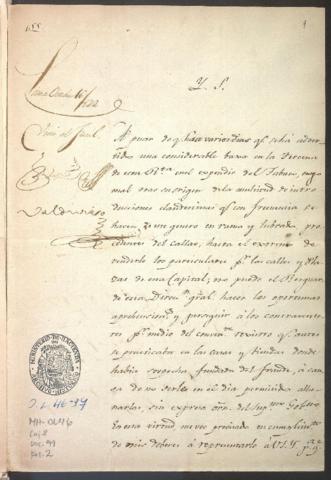 1
Lima Octubre 16/822
Y. S.
Vista al Fiscal
A pesar de q.e hace varios dias q.e se ha adver-
tido una considerable baxa en la Tercena
de esta R.ta en el expendio del Tabaco, cuyo
mal trae su origen de la multitud de intro
ducciones clandestinas q.e con frecuencia se
hacen, de este genero en rama y labrado, pro
cedentes del Callao, hasta el extremo de
Valdivieso
venderlo los particulares p.r las calles y Pla
zas de esta Capital; no puede el Resguar
do de esta Direc.n gral. hacer las oportunas
aprehenciones y perseguir à los contraventores
p.r medio del registro q.e antes
se practicaba en las casas y tiendas donde
había sospecha fundada del fraude, à cau
sa de no serles en el dia permitido alla-
narlas, sin expresa orn. del Sup.mo Gob.no
En esta virtud me veo precisado en cumplim.to
de mis deberes à representarlo à V.S.Y. p.a q.e
MINISTERIO DE HACIENDA
O.L. 46-37
MH-OL46
Caj. 8
doc. 99
fol. 2